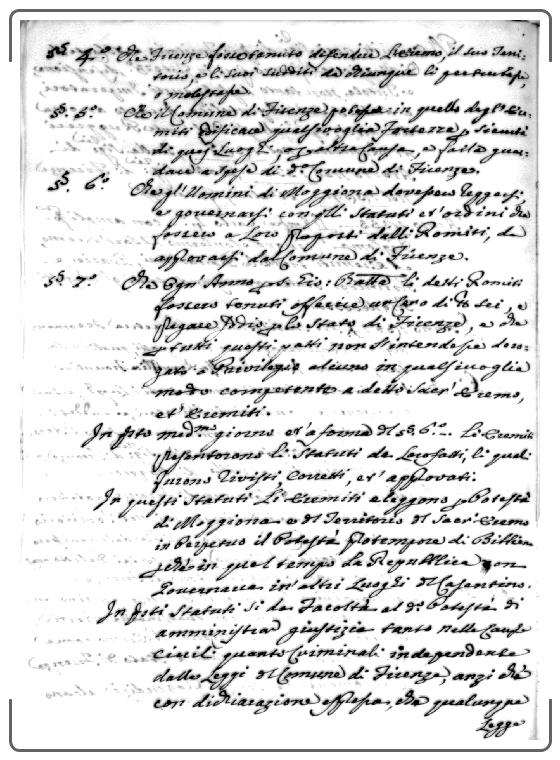 §. 4.° Che Firenze fosse tenuto difendere L'eremo, il suo Terri-
torio, e li suoi sudditi da chiunque li perturbasse,
o molestasse.
§. 5.° Che il Comune di Firenze potesse in quello degl'Ere-
miti edificare qualsivoglia Fortezza p sicurtà
di quei Luoghi, o altre Cause, e farla guar-
dare a spese di d.° Comune di Firenze.
§. 6.° Che gl'Uomini di Moggiona dovessero reggersi
e governarsi con gli Statuti et ordini che
fossero a Loro proposti dalli Romiti, da
approvarsi dal Comune di Firenze.
§. 7.° Che Ogn'Anno p S. Gio: Batta li detti Romiti
fossero tenuti offerire un Cero di sei, e
pregare Iddio p lo Stato di Firenze, e che
p tutti questi patti non s'intendesse dero-
gato a Privilegio alcuno in qualsivoglia
modo competente a detto Sacr'Eremo,
et Eremiti.
In d.to med.mo giorno et a forma del §. 6.° Li Eremiti
presentorono li Statuti da Loro fatti, li quali
furono rivisti, corretti, et approvati.
In questi Statuti Li Eremiti eleggono p Potestà
di Moggiona e del Territorio del Sacr'Eremo
in perpetuo il Potestà pro tempore di Bibbiena
p chè in quel tempo La Repubblica non
Governava in altri Luoghi del Casentino.
In d.ti Statuti si da Facoltà al d.° Potestà di
amministrar giustizia tanto nelle Cause
civili quanto Criminali independente
dalle Leggi del Comune di Firenze, anzi chè
con dichiarazione espressa, che qualunque
Legge